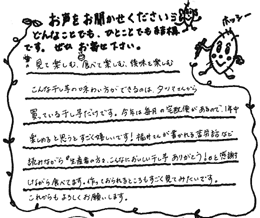 お声をお聞かせください
どんなことでも、ひとことでも結構
です。ぜひ お寄せ下さい。
ホッシー
見て楽しむ、食べて楽しむ、後味も楽しむ
こんな干し芋の味わい方ができるのは、タツマさんから
買っている干し芋だけです。今年は毎月の宅配便があるので、1年中
楽しめると思うとすごく嬉しいです！福井さんが書かれる芸術話など
読みながら"生産者の方々、こんなにおいしい干し芋 ありがとう！"と感謝
しながら食べてます。作っておられるところもすごく見てみたいです。
これからもよろしくお願いします。